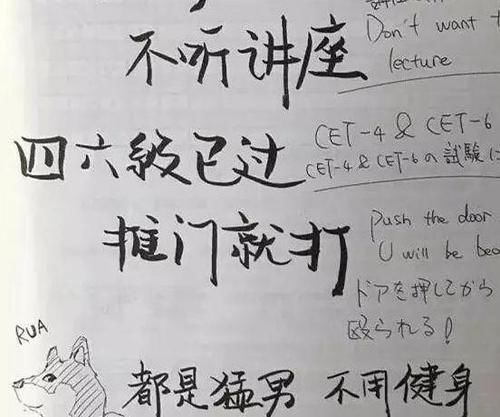 不听讲座
Don't want
lecture
四六级已过
CET-4 & CET-6
CET-4 & CET-6の試験に
推门就打
push the door
U will be
ドアを押してから
殴られる!
RUA
都是猛男 不用健身